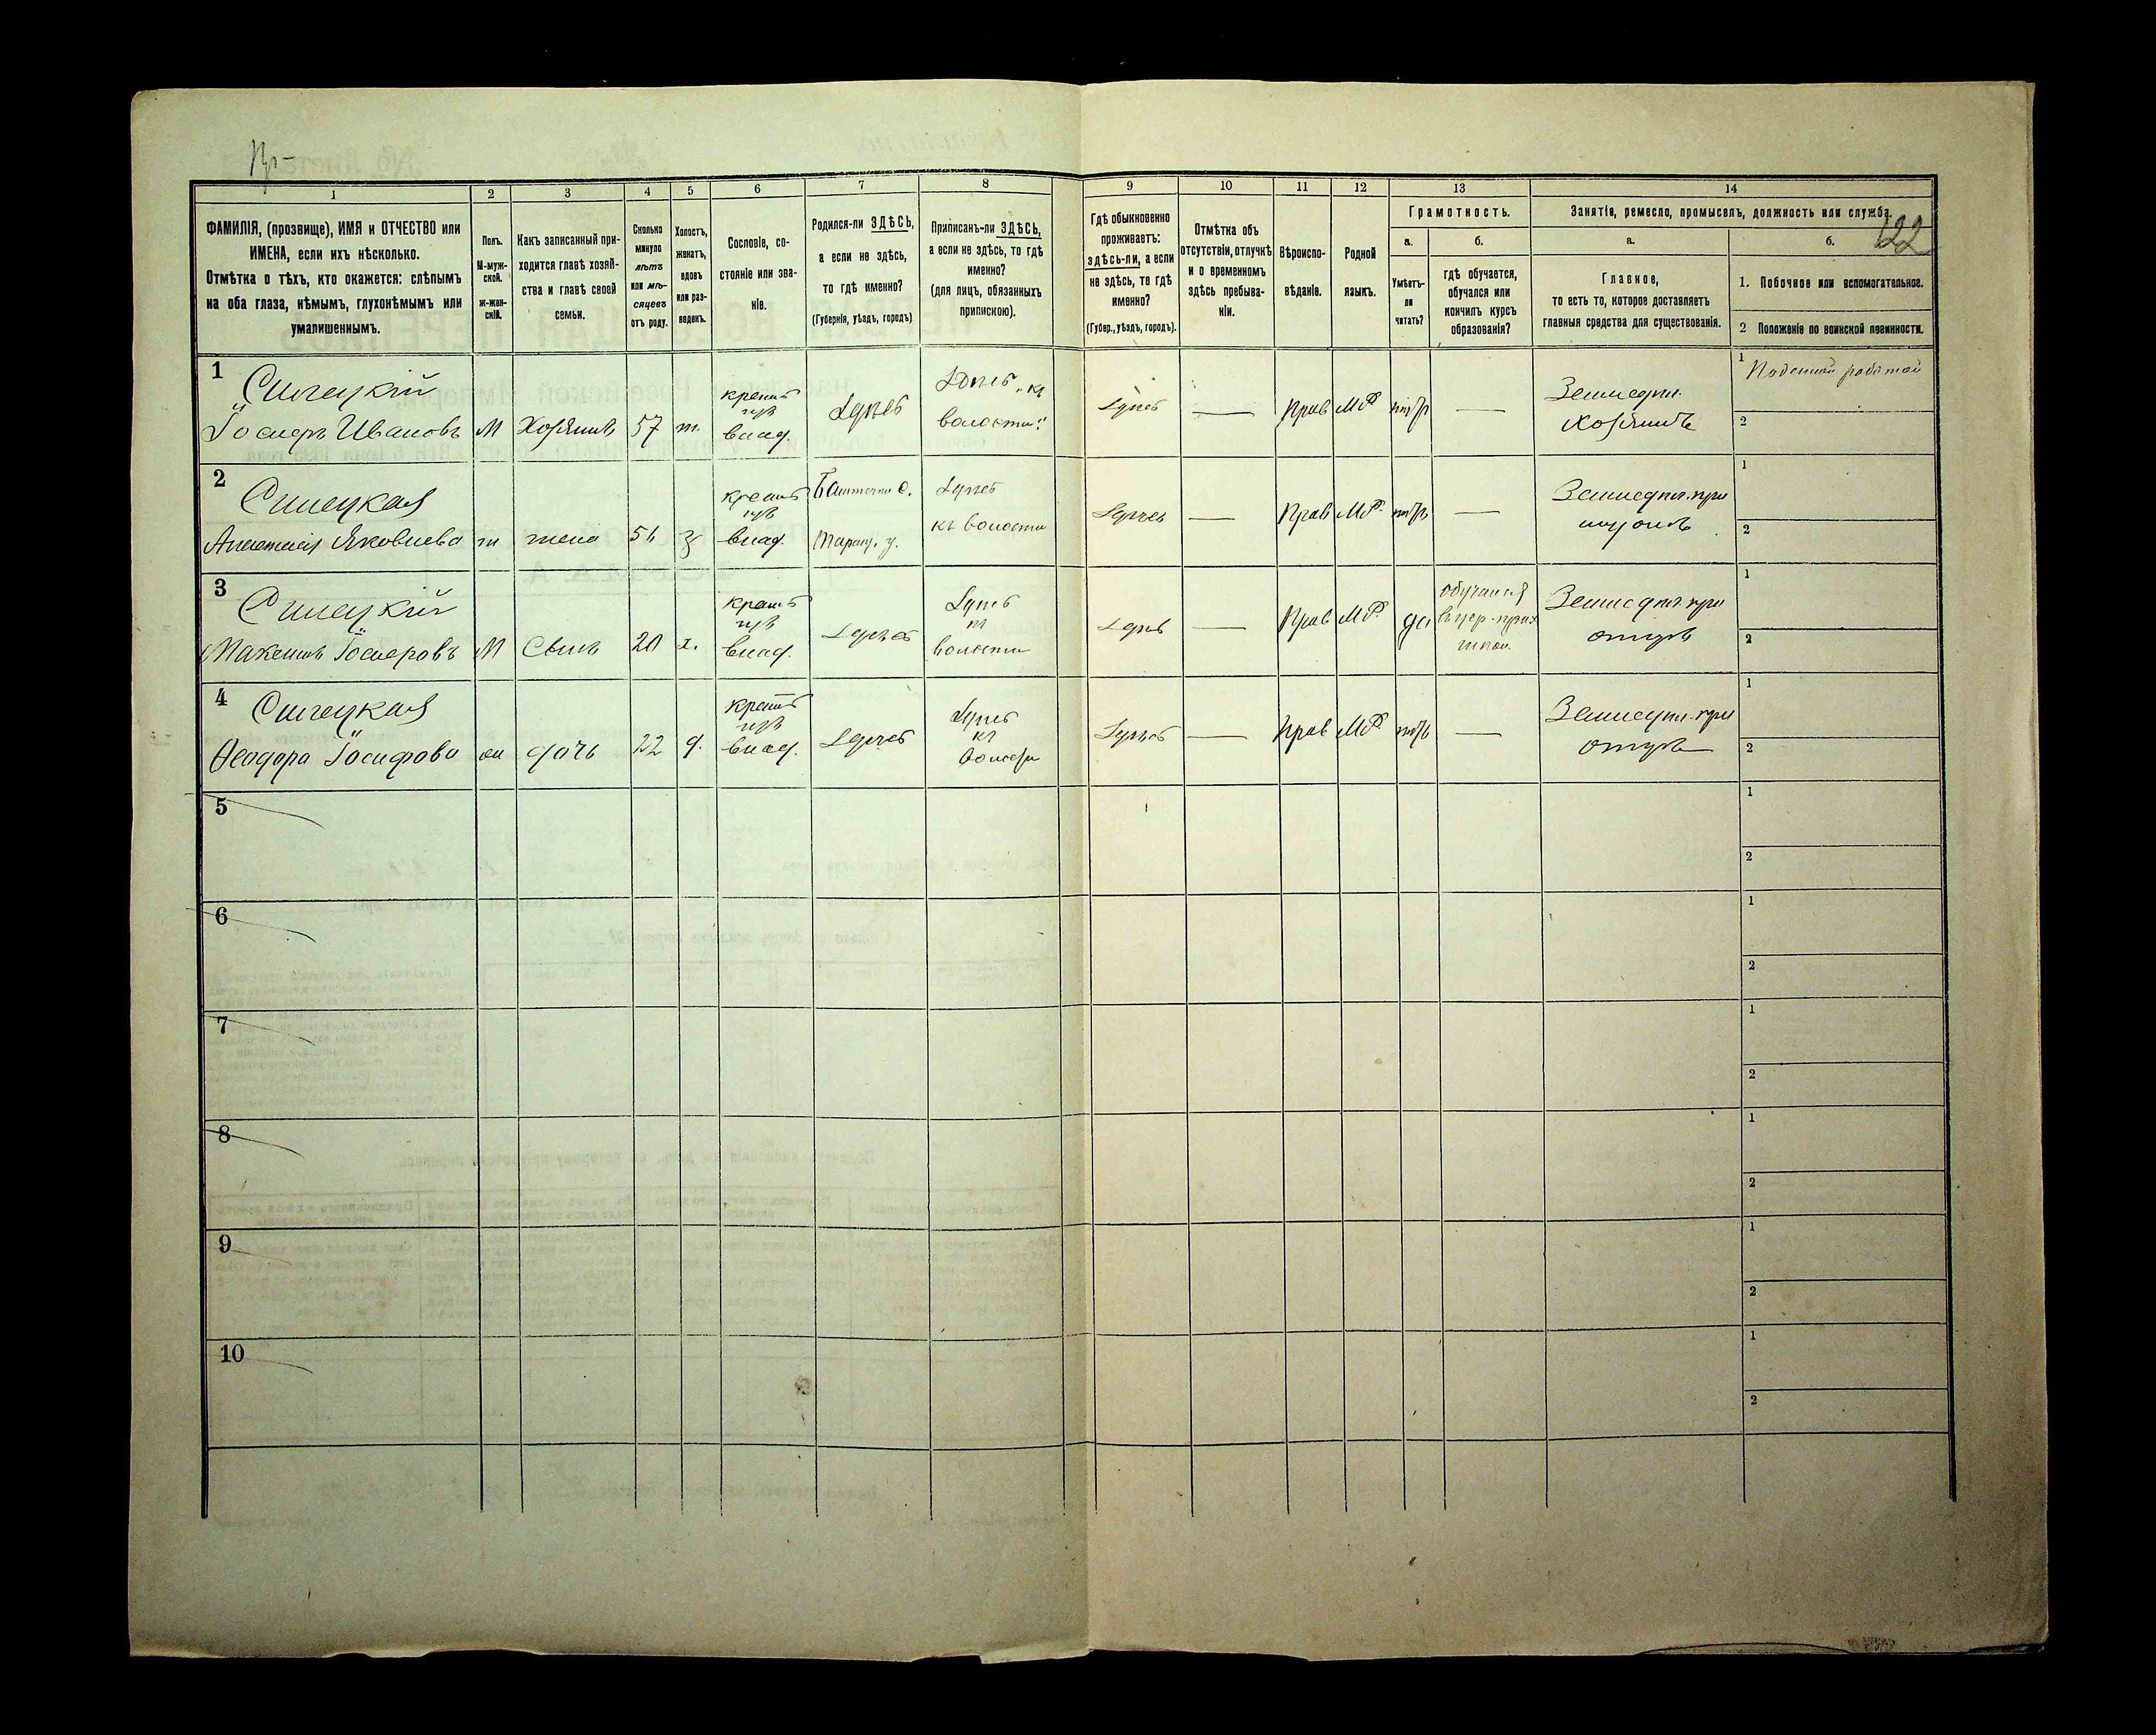 122
1
2
3
4
5
6
7
8
9
10
11
12
13
14
ФАМИЛІЯ, (прозвище), ИМЯ и ОТЧЕСТВО или
ИМЕНА, если ихъ нѣсколько.
Отмѣтка о тѣхъ, кто окажется: слѣпымъ
на оба глаза, нѣмымъ, глухонѣмымъ или
умалишеннымъ.
Полъ.
М-муж-
ской.
ж-жен-
скій.
Какъ записанный при-
ходится главѣ хозяй-
ства и главѣ своей
семьи.
Сколько
минуло
лѣтъ
или мѣ-
сяцевъ
отъ роду.
Холостъ,
женатъ,
вдовъ
или раз-
веденъ.
Сословіе, со-
стояніе или зва-
ніе.
Родился-ли ЗДѢСЬ,
а если не здѣсь,
то гдѣ именно?
(Губернія, уѣздъ, городъ)
Приписанъ-ли ЗДѢСЬ,
а если не здѣсь, то гдѣ
именно?
(для лицъ, обязанныхъ
припискою).
Гдѣ обыкновенно
проживаетъ:
здѣсь-ли, а если
не здѣсь, то гдѣ
именно?
(Губер., уѣздъ, городъ).
Отмѣтка объ
отсутствіи, отлучкѣ
и о временномъ
здѣсь пребыва-
ніи.
Вѣроиспо-
вѣданіе.
Родной
языкъ.
Грамотность.
а.
Умѣетъ-
ли
читать?
б.
гдѣ обучается,
обучался или
кончилъ курсъ
образованія?
Занятіе, ремесло, промыселъ, должность или служба.
а.
Главное,
то есть то, которое доставляетъ
главныя средства для существованія.
б.
1. Побочное или вспомогательное.
2 Положеніе по воинской повинности.
1
Іосифъ Ивановъ
М
Хозяинъ
57
ж.
крест
изъ
влад.
Здѣсь
Здѣсь къ
волости
Здѣсь
—
Прав
МР
нѣтъ
—
Земледѣл.
Хозяинъ
1
Поденной работой
2
2
Анастасія Яковлева
ж
жена
з
крест
изъ
влад.
Здѣсь
къ волости
Здѣсь
—
Прав
МР.
нѣтъ
—
Земледѣл. при
мужѣ
1
2
3
Максимъ Іосифовъ
М
Сынъ
20
х.
крест
изъ
влад.
Здѣсь
Здѣсь
къ
волости
Здѣсь
—
Прав
МР.
да
обучался
въ цер-прих
школ.
Земледѣл. при
отцѣ
1
2
4
Ѳеодора Іосифова
ж
дочь
22
д.
крест
изъ
влад.
Здѣсь
Здѣсь
къ
волости
Здѣсь
—
Прав
МР
нѣтъ
—
Земледѣл. при
отцѣ
1
2
5
1
2
6
1
2
7
1
2
8
1
2
9
1
2
10
1
2